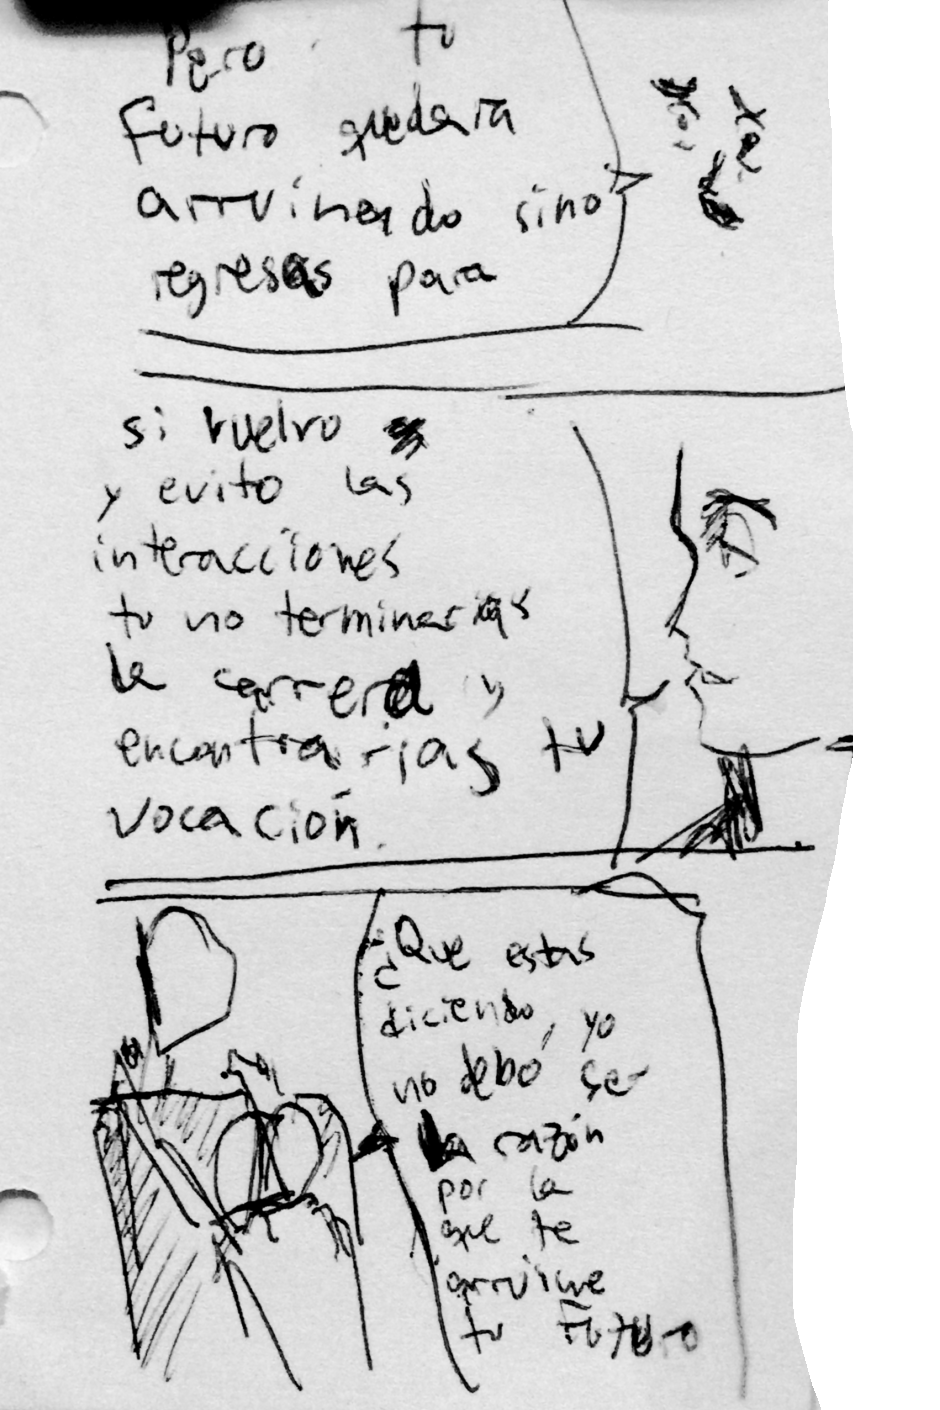 Pero tu
futuro quedaria
arruinado sino
regresas para
si vuelvo
y evito las
interacciones
tu no terminarias
la carrera y
encontrarias tu
vocación.
¿Que estas
diciendo, yo
no debo ser
la razón
por la
que te
arruine
tu Futuro